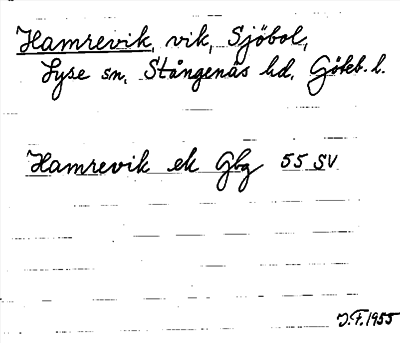 Hamrevik, vik, Sjöbol,
Lyse sn, Stångenäs hd, Göteb. l.
Hamrevik ek Gbg 55 SV
J.F. 1955